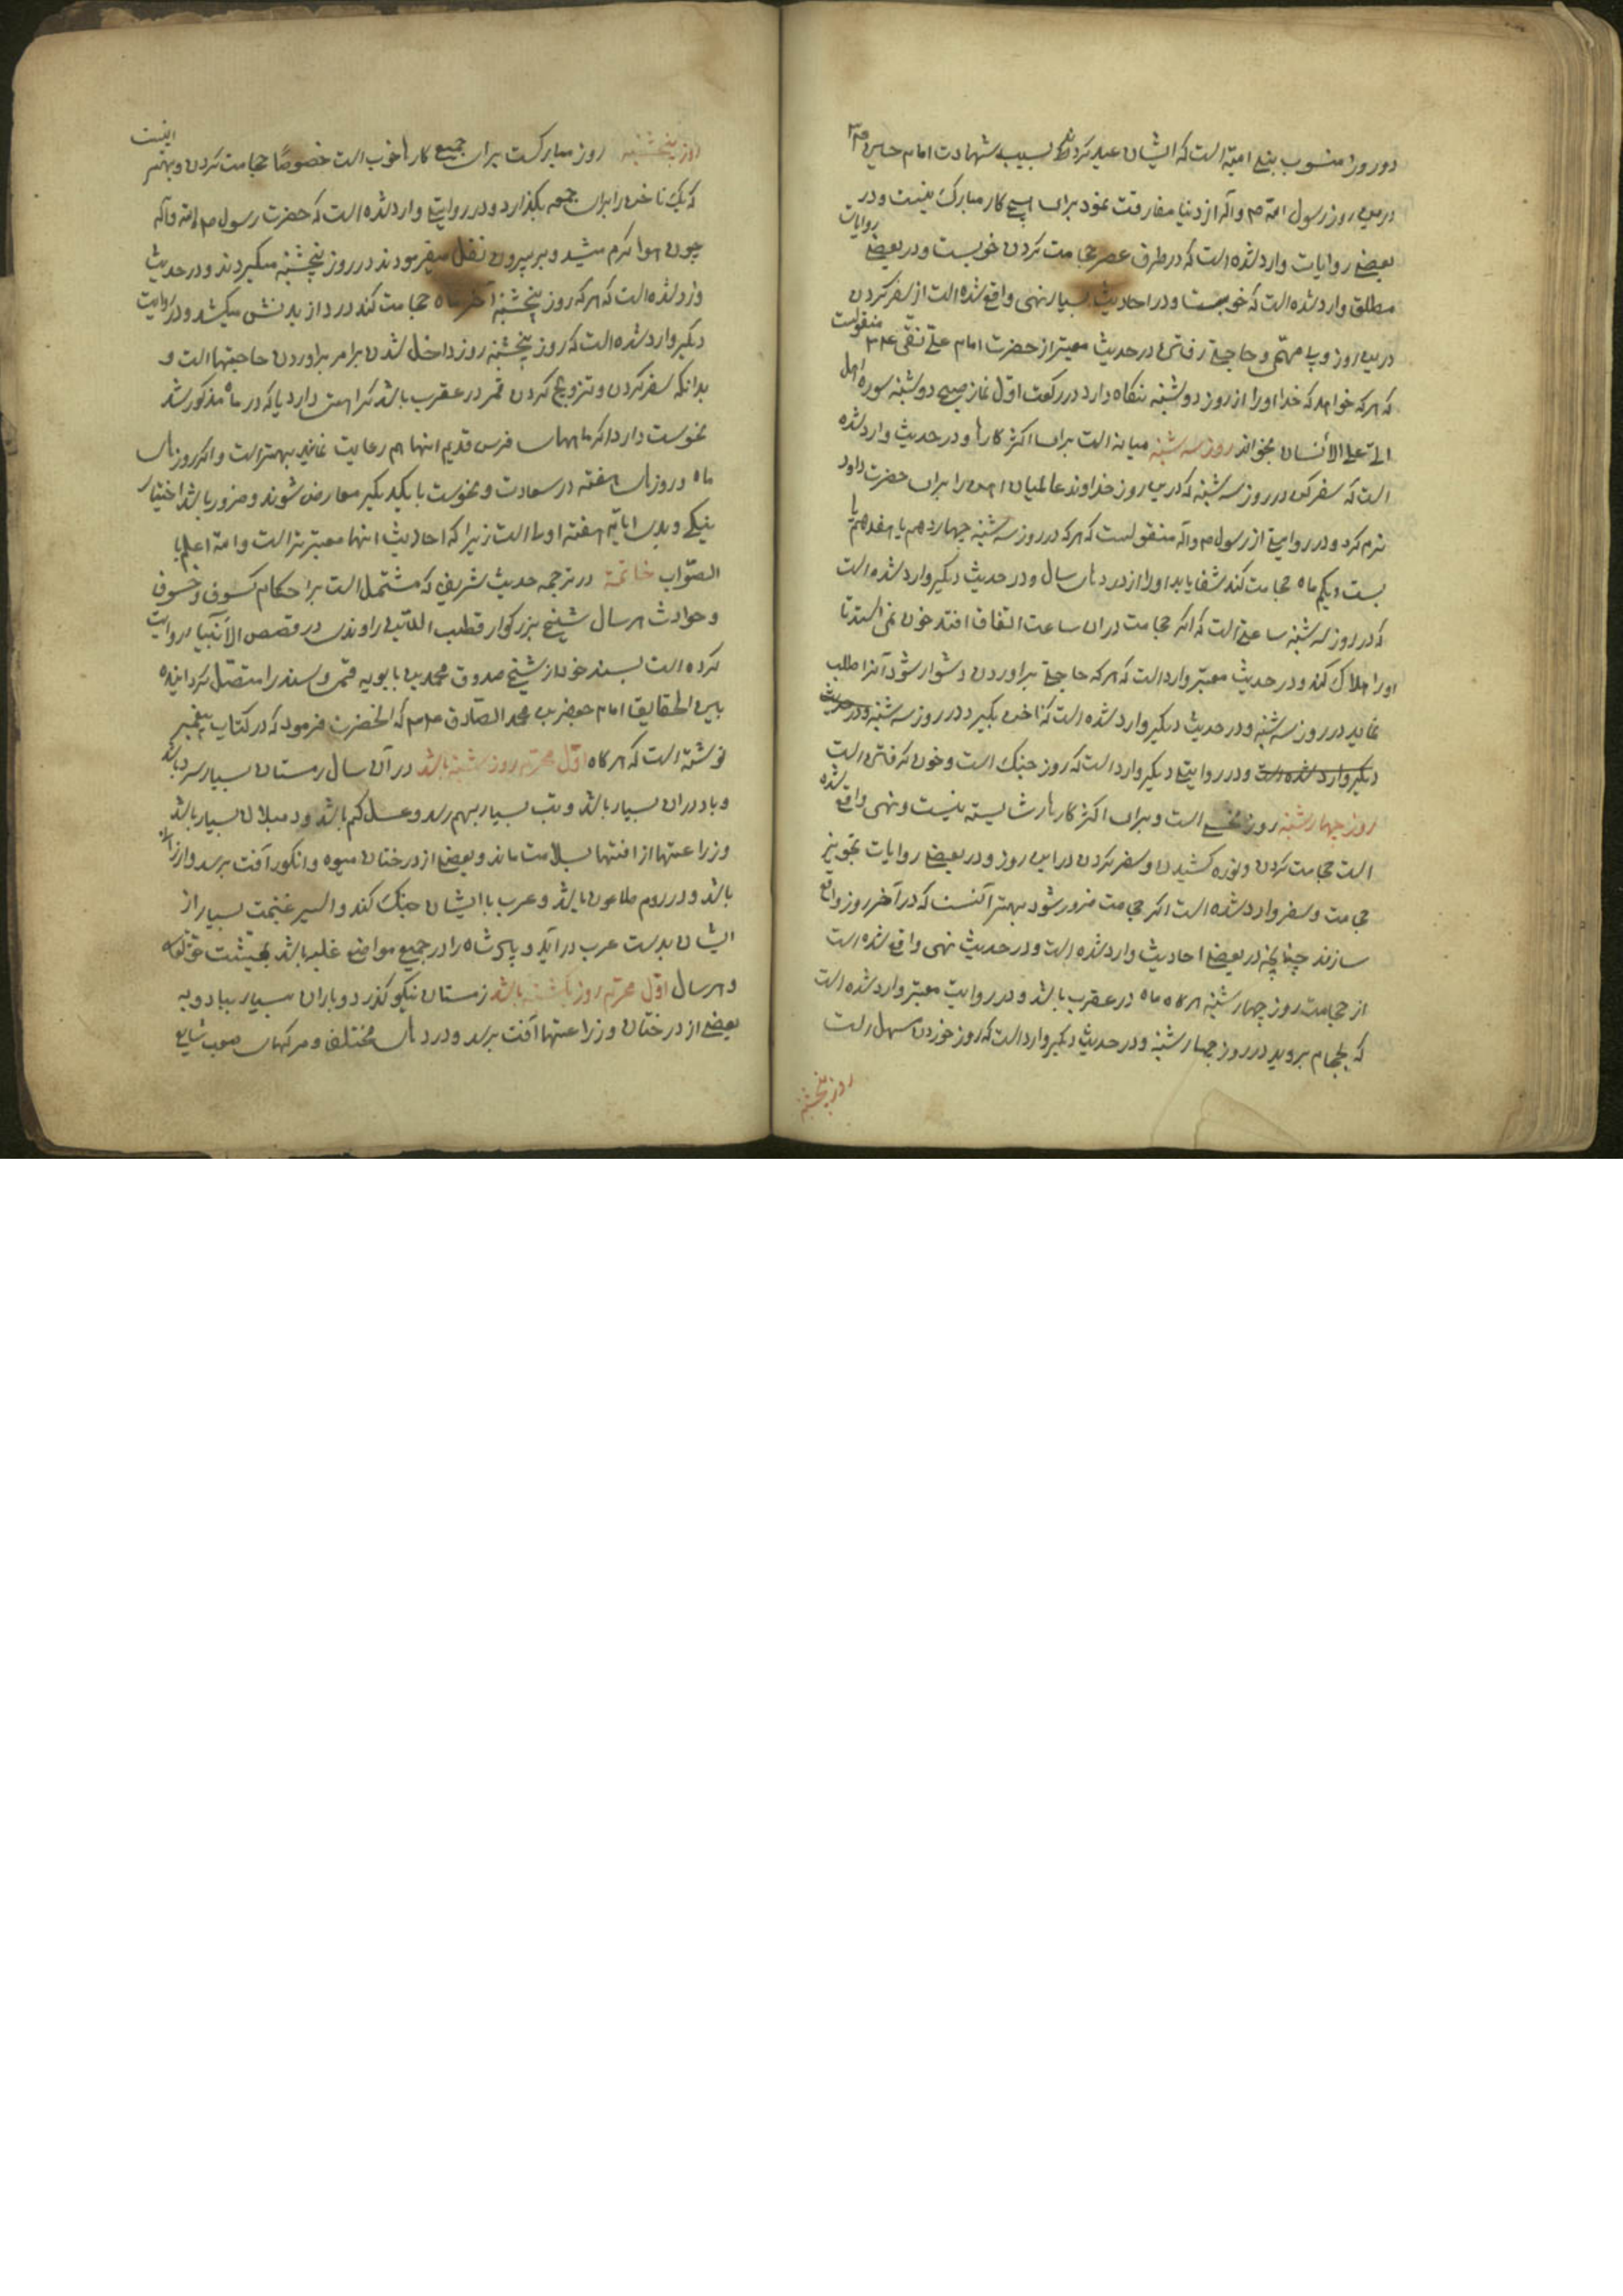 دو روز منسوب ببنی امیة است که ایشان عید کردند بسبب شهادت امام حسین ع م
درین روز رسول الله ص و آله از دنیا مفارقت نمود برای هیچ کار مبارک نیست و در
بعضی روایات وارد شده است که در طرف عصر حجامت کردن خوبست و در بعضی روایات
مطلق وارد شده است که خوبست و در احادیث بسیار نهی واقع شده است از سفر کردن
درین روز و پی مهمّی و حاجتی رفتن در حدیث معتبر از حضرت امام علی نقی ع م منقولست
که هر که خواهد که خدا او را از روز دوشنبه نگاه دارد در رکعت اوّل نماز صبح دوشنبه سوره هل
اتی علی الأنسان بخواند روز سه شنبه میانه است برای اکثر کارها و در حدیث وارد شده
است که سفر کن در روز سه شنبه که درین روز خداوند عالمیان اهن را برای حضرت داود
نرم کرد و در روایتی از رسول ص و آله منقولست که هر که در روز سه شنبه چهاردهم یا هفدهم یا
بیست و یکم ماه حجامت کند شفا یابد او را از دردهای سال و در حدیث دیگر وارد شده است
که در روز سه شنبه ساعتی است که اگر حجامت در ان ساعت اتفاق افتد خون نمی ایستد تا
او را هلاک کند و در حدیث معتبر وارد است که هر که حاجتی براوردن دشوار شود آنرا طلب
نماید در روز سه شنبه و در حدیث دیگر وارد شده است که ناخن بگیرد در روز سه شنبه و در حدیث
دیگر وارد شده است و در روایتی دیگر وارد است که روز جنک است و خون گرفتن است
روز چهارشنبه روز نحس است و برای اکثر کارها شایسته نیست و نهی واقع شده
است حجامت کردن و نوره کشیدن و سفر کردن در این روز و در بعضی روایات تجویز
حجامت و سفر وارد شده است اگر حجامت ضرور شود بهتر آنست که در آخر روز واقع
سازند چنانچه در بعضی احادیث وارد شده است و در حدیث نهی واقع شده است
از حجامت روز چهارشنبه هرگاه ماه در عقرب باشد و در روایت معتبر وارد شده است
که بحمام بروید در روز چهارشنبه و در حدیث دیگر وارد است که روز خوردن مسهل است
روز پنجشنبه
روز پنجشنبه روز مبارکست برای جمیع کارها خوب است خصوصًا حجامت کردن و بهتر اینست
که یک ناخن را برای جمعه بگذارد و در روایتی وارد شده است که حضرت رسول ص الله و آله
چون هوا گرم میشد و بر بیرون نقل میفرمودند در روز پنجشنبه میکردند و در حدیث
وارد شده است که هر که روز پنجشنبه آخر ماه حجامت کند درد از بدنش میکشد و در روایت
دیگر وارد شده است که روز پنجشنبه روز داخل شدن برامر براوردن حاجتها است و
بدانکه سفر کردن و تزویج کردن قمر در عقرب باشد کراهت دارد یا که در ماه مذکور شد
نحوست دارد اگر ماههای فرس قدیم انها هم رعایت نمایند بهتر است و اگر روزهای
ماه و روزهای هفته در سعادت و نحوست با یکدیگر معارض شوند و ضرور باشد اختیار
نیکی و بدی ایام هفته اولا است زیرا که احادیث انها معتبرتر است و الله اعلم با
الصّواب خاتمة در ترجمه حدیث شریفی که مشتمل است بر احکام کسوف و خسوف
و حوادث هر سال شیخ بزرگوار قطب الدّین راوندی در قصص الأنبیا روایت
کرده است بسند خود از شیخ صدوق محمد بن بابویه قمی و سند را متصّل گردانیده
بابی الحقایق امام جعفر بن محمد الصّادق ع م که انحضرت فرمود که در کتاب پیغمبر
نوشته است که هر گاه اوّل محرّم روز شنبه باشد در آن سال زمستان بسیار سرد باشد
و باد دران بسیار باشد و تب بسیار بهم رسد و عسل کم باشد و دمبلان بسیار باشد
و زراعتها از افتها بسلامت ماند و بعضی از درختان میوه و انگور آفت برسد و ارزانی
باشد و در روم طاعون باشد و عرب با ایشان جنک کند و اسیر غنیمت بسیار از
ایشان بدست عرب در آید و پادشاه را در جمیع مواضع غلبه باشد بمیشت حق تعالی
و هر سال اوّل محرّم روز یکشنبه باشد زمستان نیکو گذرد و باران بسیار بیاد و به
بعضی از درختان و زراعتها آفت برسد و دردهای مختلف و مرگهای صعب شایع